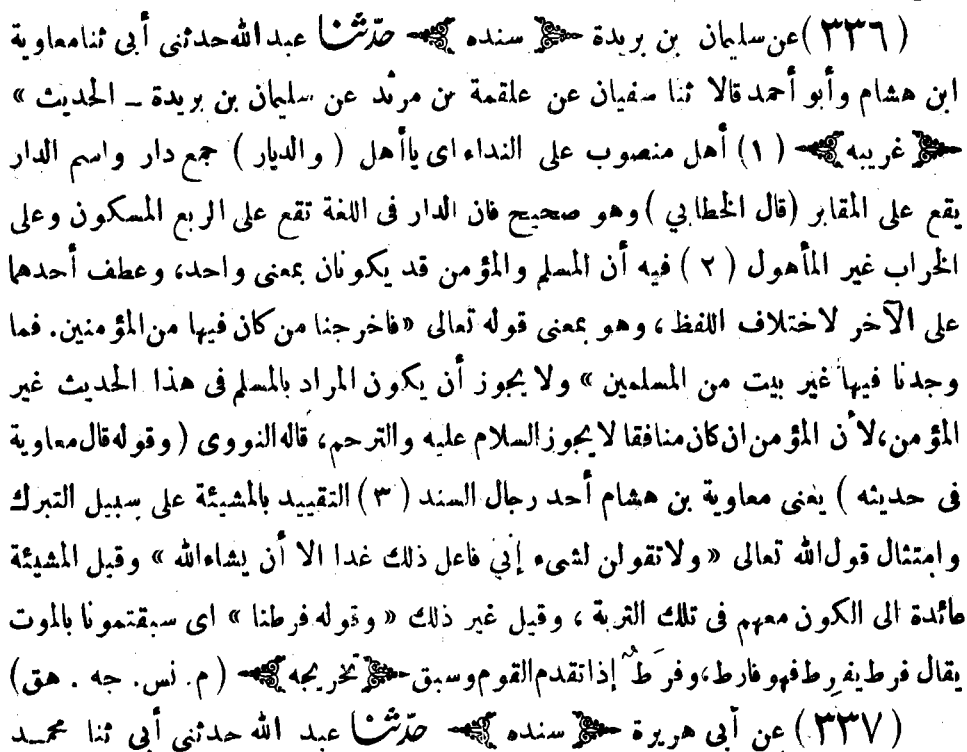 (٣٣٦) عن سليمان بن بريدة سنده حدثنا عبد الله حدثنى أبى ثنا معاوية
ابن هشام وأبو أحمد قالا ثنا سفيان عن علقمة بن مرثد عن سليمان بن بريدة ــ الحديث »
غريبه (١) أهل منصوب على النداء اى ياأهل ( والديار ) جمع دار واسم الدار
يقع على المقابر (قال الخطابي ) وهو صحيح فان الدار فى اللغة تقع على الربع المسكون وعلى
الخراب غير المأهول (٢) فيه أن المسلم والمؤمن قد يكونان بمعنى واحد، وعطف أحدهما
على الآخر لاختلاف اللفظ، وهو بمعنى قوله تعالى «فاخرجنا من كان فيها من المؤمنين. فما
وجدنا فيها غير بيت من المسلمين » ولا يجوز أن يكون المراد بالمسلم فى هذا الحديث غير
المؤمن، لأن المؤمن ان كان منافقا لا يجوز السلام عليه والترحم، قاله النووى ( وقوله قال معاوية
فى حديثه ) يعنى معاوية بن هشام أحد رجال السند (٣) التقييد بالمشيئة على سبيل التبرك
وامتثال قول الله تعالى « ولا تقولن لشىء إني فاعل ذلك غدا الا أن يشاء الله » وقيل المشيئة
عائدة الى الكون معهم فى تلك التربة ، وقيل غير ذلك « وقوله فرطنا » اى سبقتمونا بالموت
يقال فرط يفرِط فهو فارط، وفرَطٌ إذا تقدم القوم وسبق تخريجه ( م. نس. جه . هق)
(٣٣٧) عن أبى هريرة سنده حدثنا عبد الله حدثنى أبى ثنا محمد